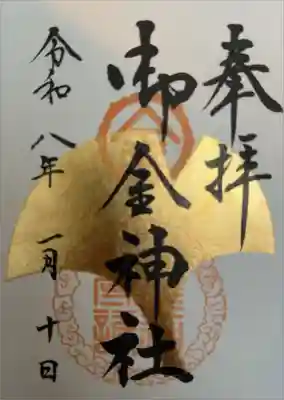 奉拝
御金神社
令和八年 一月 十日